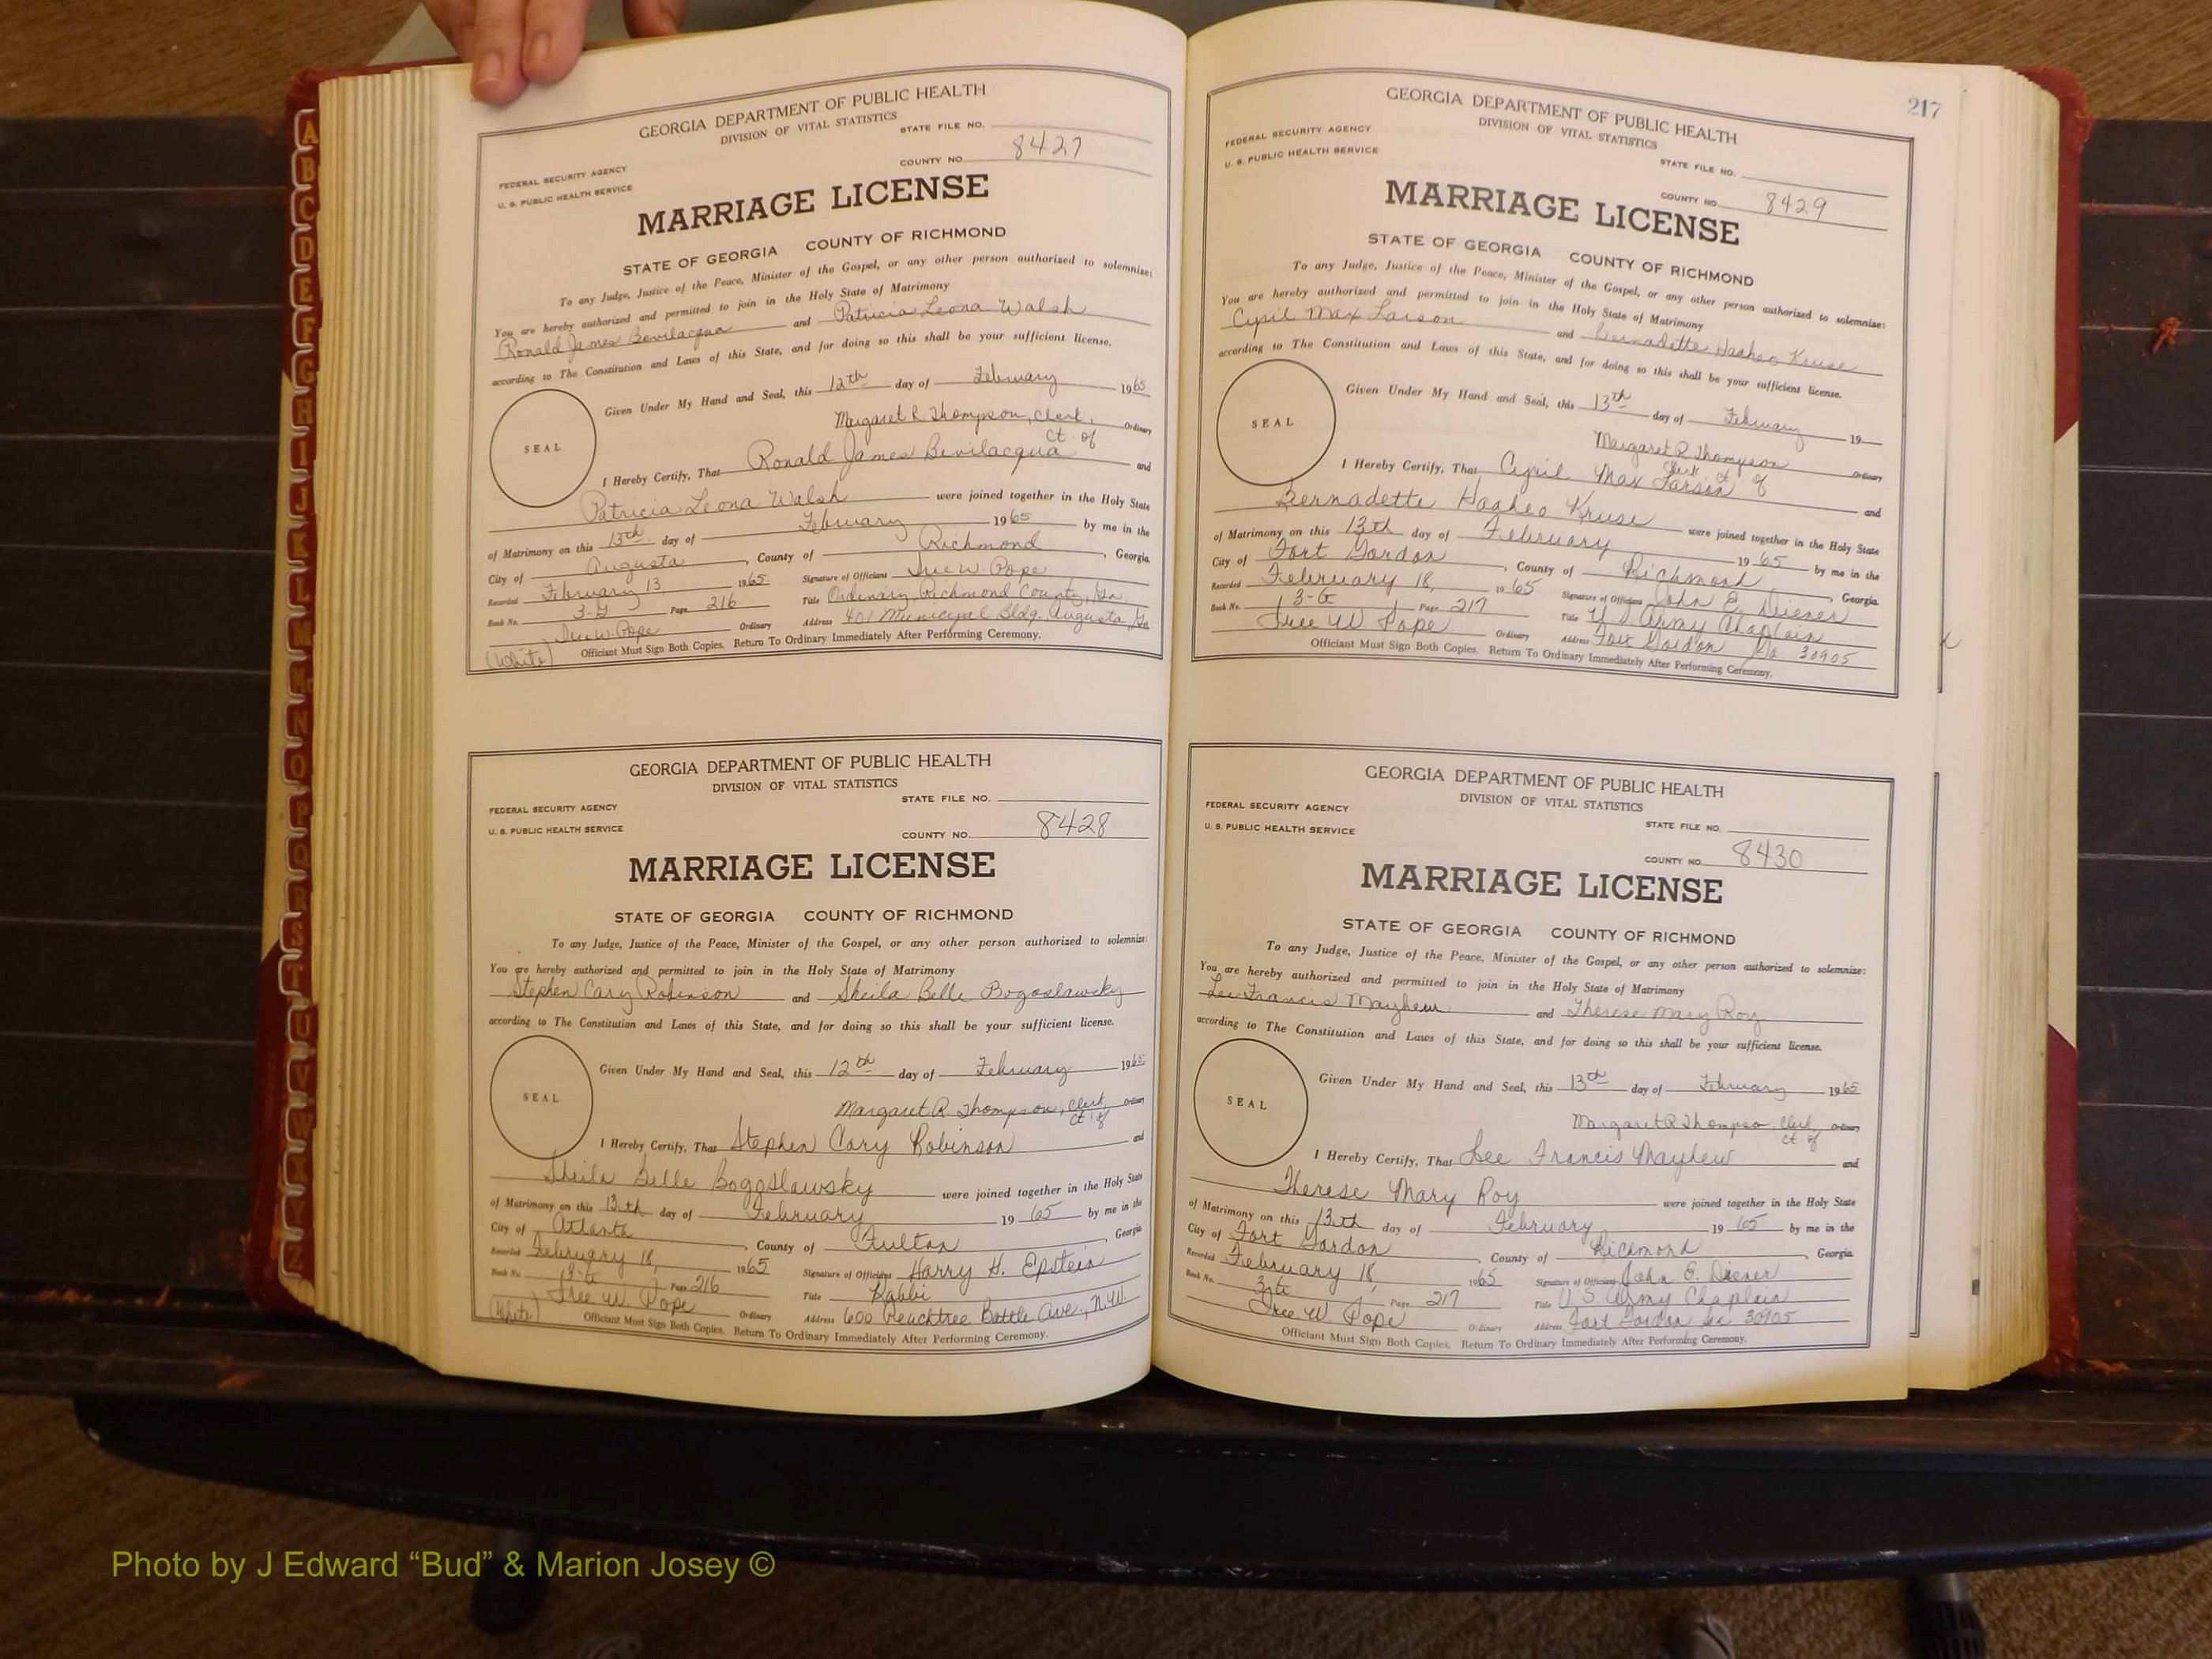 GEORGIA DEPARTMENT OF PUBLIC HEALTH
DIVISION OF VITAL STATISTICS
STATE FILE NO.
FEDERAL SECURITY AGENCY
U. S. PUBLIC HEALTH SERVICE
COUNTY NO. 8427
MARRIAGE LICENSE
STATE OF GEORGIA COUNTY OF RICHMOND
To any Judge, Justice of the Peace, Minister of the Gospel, or any other person authorized to solemnize:
You are hereby authorized and permitted to join in the Holy State of Matrimony
Ronald James Bevilacqua and Patricia Leona Walsh
according to The Constitution and Laws of this State, and for doing so this shall be your sufficient license.
SEAL
Given Under My Hand and Seal, this 12th day of February 1965
Margaret R. Thompson, Clerk, Ordinary
Ct. of
I Hereby Certify, That Ronald James Bevilacqua and
Patricia Leona Walsh were joined together in the Holy State
of Matrimony on this 13th day of February 1965 by me in the
City of Augusta, County of Richmond, Georgia.
Recorded February 13, 1965 Signature of Officiant W. Pope
Book No. Page 216 Title Ordinary, Richmond County, Ga.
W. Pope Ordinary Address 401 Municipal Bldg. Augusta, Ga
(White) Officiant Must Sign Both Copies. Return To Ordinary Immediately After Performing Ceremony.
GEORGIA DEPARTMENT OF PUBLIC HEALTH
DIVISION OF VITAL STATISTICS
STATE FILE NO.
FEDERAL SECURITY AGENCY
U. S. PUBLIC HEALTH SERVICE
COUNTY NO. 8428
MARRIAGE LICENSE
STATE OF GEORGIA COUNTY OF RICHMOND
To any Judge, Justice of the Peace, Minister of the Gospel, or any other person authorized to solemnize:
You are hereby authorized and permitted to join in the Holy State of Matrimony
Stephen Cary Robinson and Sheila Belle Bogoslawsky
according to The Constitution and Laws of this State, and for doing so this shall be your sufficient license.
SEAL
Given Under My Hand and Seal, this 12th day of February 1965
Margaret R. Thompson, Clerk, Ordinary
Ct. of
I Hereby Certify, That Stephen Cary Robinson and
Sheila Belle Bogoslawsky were joined together in the Holy State
of Matrimony on this 13th day of February 1965 by me in the
City of Atlanta, County of Fulton, Georgia
Recorded February 18, 1965 Signature of Officiant Harry H. Epstein
Book No. 3-G Page 216 Title Rabbi
W. Pope Ordinary Address 600 Peachtree Battle Ave., N.W.
(White) Officiant Must Sign Both Copies. Return To Ordinary Immediately After Performing Ceremony.
217
GEORGIA DEPARTMENT OF PUBLIC HEALTH
DIVISION OF VITAL STATISTICS
FEDERAL SECURITY AGENCY
U. S. PUBLIC HEALTH SERVICE
STATE FILE NO.
COUNTY NO. 8429
MARRIAGE LICENSE
STATE OF GEORGIA COUNTY OF RICHMOND
To any Judge, Justice of the Peace, Minister of the Gospel, or any other person authorized to solemnize:
You are hereby authorized and permitted to join in the Holy State of Matrimony
Max Larson and Bernadette Kruse
according to The Constitution and Laws of this State, and for doing so this shall be your sufficient license.
SEAL
Given Under My Hand and Seal, this 13th day of February 19
Margaret R. Thompson Ordinary
Clerk Ct. of
I Hereby Certify, That Max Larson and
Bernadette Kruse were joined together in the Holy State
of Matrimony on this 13th day of February 1965 by me in the
City of Fort Gordon, County of Richmond, Georgia.
Recorded February 18, 1965 Signature of Officiant John E. Diener
Book No. 3-G Page 217 Title U S Army Chaplain
W Pope Ordinary Address Fort Gordon Ga 30905
Officiant Must Sign Both Copies. Return To Ordinary Immediately After Performing Ceremony.
GEORGIA DEPARTMENT OF PUBLIC HEALTH
DIVISION OF VITAL STATISTICS
FEDERAL SECURITY AGENCY
U. S. PUBLIC HEALTH SERVICE
STATE FILE NO.
COUNTY NO. 8430
MARRIAGE LICENSE
STATE OF GEORGIA COUNTY OF RICHMOND
To any Judge, Justice of the Peace, Minister of the Gospel, or any other person authorized to solemnize:
You are hereby authorized and permitted to join in the Holy State of Matrimony
Lee Francis Mayhew and Therese Mary Roy
according to The Constitution and Laws of this State, and for doing so this shall be your sufficient license.
SEAL
Given Under My Hand and Seal, this 13th day of February 1965
Margaret R Thompso, Clerk, Ordinary
Ct. of
I Hereby Certify, That Lee Francis Mayhew and
Therese Mary Roy were joined together in the Holy State
of Matrimony on this 13th day of February 1965 by me in the
City of Fort Gordon, County of Richmond, Georgia.
Recorded February 18, 1965 Signature of Officiant John E. Diener
Book No. 3-G Page 217 Title U S Army Chaplain
W. Pope Ordinary Address Fort Gordon Ga 30905
Officiant Must Sign Both Copies. Return To Ordinary Immediately After Performing Ceremony.
A
B
C
D
E
F
G
H
I
J
K
L
M
N
O
P
Q
R
S
T
U
V
W
X
Y
Z
Photo by J Edward “Bud” & Marion Josey ©